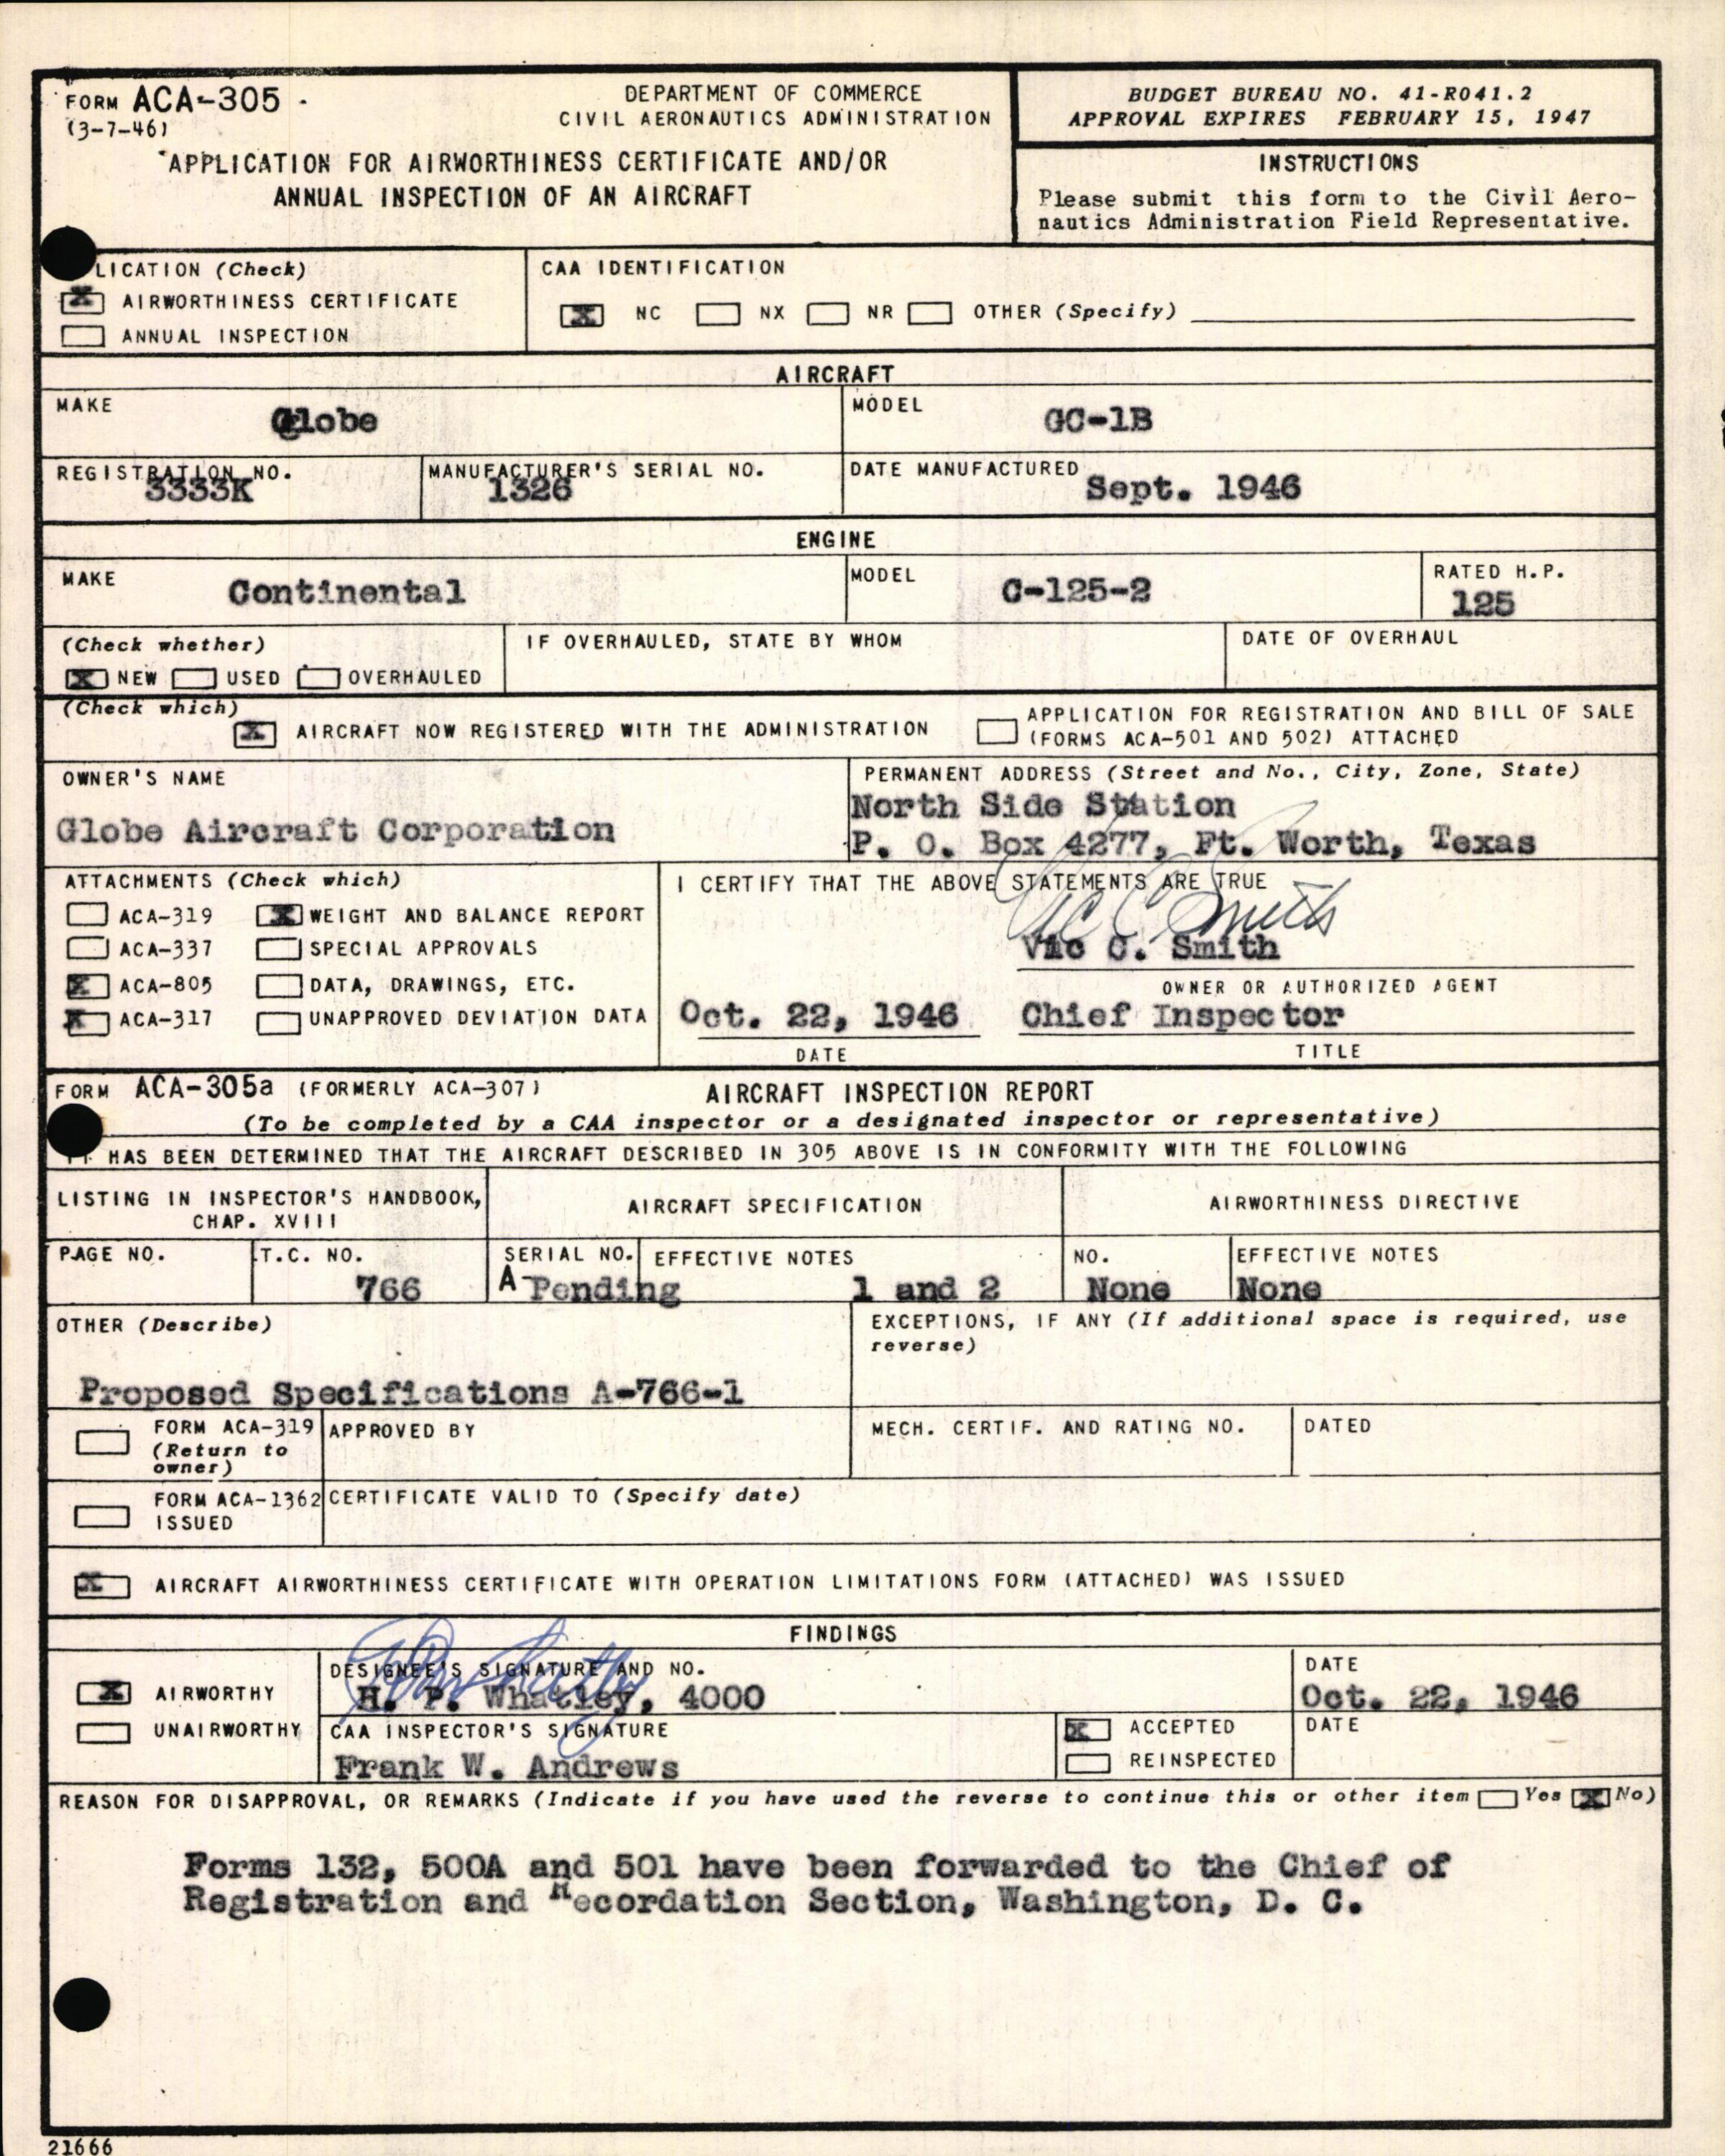 FORM ACA-305
(3-7-46)
DEPARTMENT OF COMMERCE
CIVIL AERONAUTICS ADMINISTRATION
APPLICATION FOR AIRWORTHINESS CERTIFICATE AND/OR
ANNUAL INSPECTION OF AN AIRCRAFT
BUDGET BUREAU NO. 41-R041.2
APPROVAL EXPIRES FEBRUARY 15, 1947
INSTRUCTIONS
Please submit this form to the Civil Aero-
nautics Administration Field Representative.
LICATION (Check)
X AIRWORTHINESS CERTIFICATE
ANNUAL INSPECTION
CAA IDENTIFICATION
X NC NX NR OTHER (Specify)
AIRCRAFT
MAKE
Globe
MODEL
GC-1B
REGISTRATION NO.
3333K
MANUFACTURER'S SERIAL NO.
1326
DATE MANUFACTURED
Sept. 1946
ENGINE
MAKE
Continental
MODEL
C-125-2
RATED H.P.
125
(Check whether)
X NEW USED OVERHAULED
IF OVERHAULED, STATE BY WHOM
DATE OF OVERHAUL
(Check which)
X AIRCRAFT NOW REGISTERED WITH THE ADMINISTRATION
APPLICATION FOR REGISTRATION AND BILL OF SALE
(FORMS ACA-501 AND 502) ATTACHED
OWNER'S NAME
Globe Aircraft Corporation
PERMANENT ADDRESS (Street and No., City, Zone, State)
North Side Station
P. O. Box 4277, Ft. Worth, Texas
ATTACHMENTS (Check which)
ACA-319 X WEIGHT AND BALANCE REPORT
ACA-337 SPECIAL APPROVALS
X ACA-805 DATA, DRAWINGS, ETC.
X ACA-317 UNAPPROVED DEVIATION DATA
I CERTIFY THAT THE ABOVE STATEMENTS ARE TRUE
Vic C Smith
Vic C. Smith
OWNER OR AUTHORIZED AGENT
Oct. 22, 1946 Chief Inspector
DATE TITLE
FORM ACA-305a (FORMERLY ACA-307) AIRCRAFT INSPECTION REPORT
(To be completed by a CAA inspector or a designated inspector or representative)
IT HAS BEEN DETERMINED THAT THE AIRCRAFT DESCRIBED IN 305 ABOVE IS IN CONFORMITY WITH THE FOLLOWING
LISTING IN INSPECTOR'S HANDBOOK,
CHAP. XVIII
AIRCRAFT SPECIFICATION
AIRWORTHINESS DIRECTIVE
PAGE NO.
T.C. NO.
766
SERIAL NO.
A Pending
EFFECTIVE NOTES
1 and 2
NO.
None
EFFECTIVE NOTES
None
OTHER (Describe)
Proposed Specifications A-766-1
EXCEPTIONS, IF ANY (If additional space is required, use
reverse)
FORM ACA-319
(Return to
owner)
APPROVED BY
MECH. CERTIF. AND RATING NO.
DATED
FORM ACA-1362
ISSUED
CERTIFICATE VALID TO (Specify date)
X AIRCRAFT AIRWORTHINESS CERTIFICATE WITH OPERATION LIMITATIONS FORM (ATTACHED) WAS ISSUED
FINDINGS
X AIRWORTHY
UNAIRWORTHY
DESIGNEE'S SIGNATURE AND NO.
H. P. Whatley, 4000
DATE
Oct. 22, 1946
CAA INSPECTOR'S SIGNATURE
Frank W. Andrews
X ACCEPTED
REINSPECTED
DATE
REASON FOR DISAPPROVAL, OR REMARKS (Indicate if you have used the reverse to continue this or other item Yes X No)
Forms 132, 500A and 501 have been forwarded to the Chief of
Registration and Recordation Section, Washington, D. C.
21666